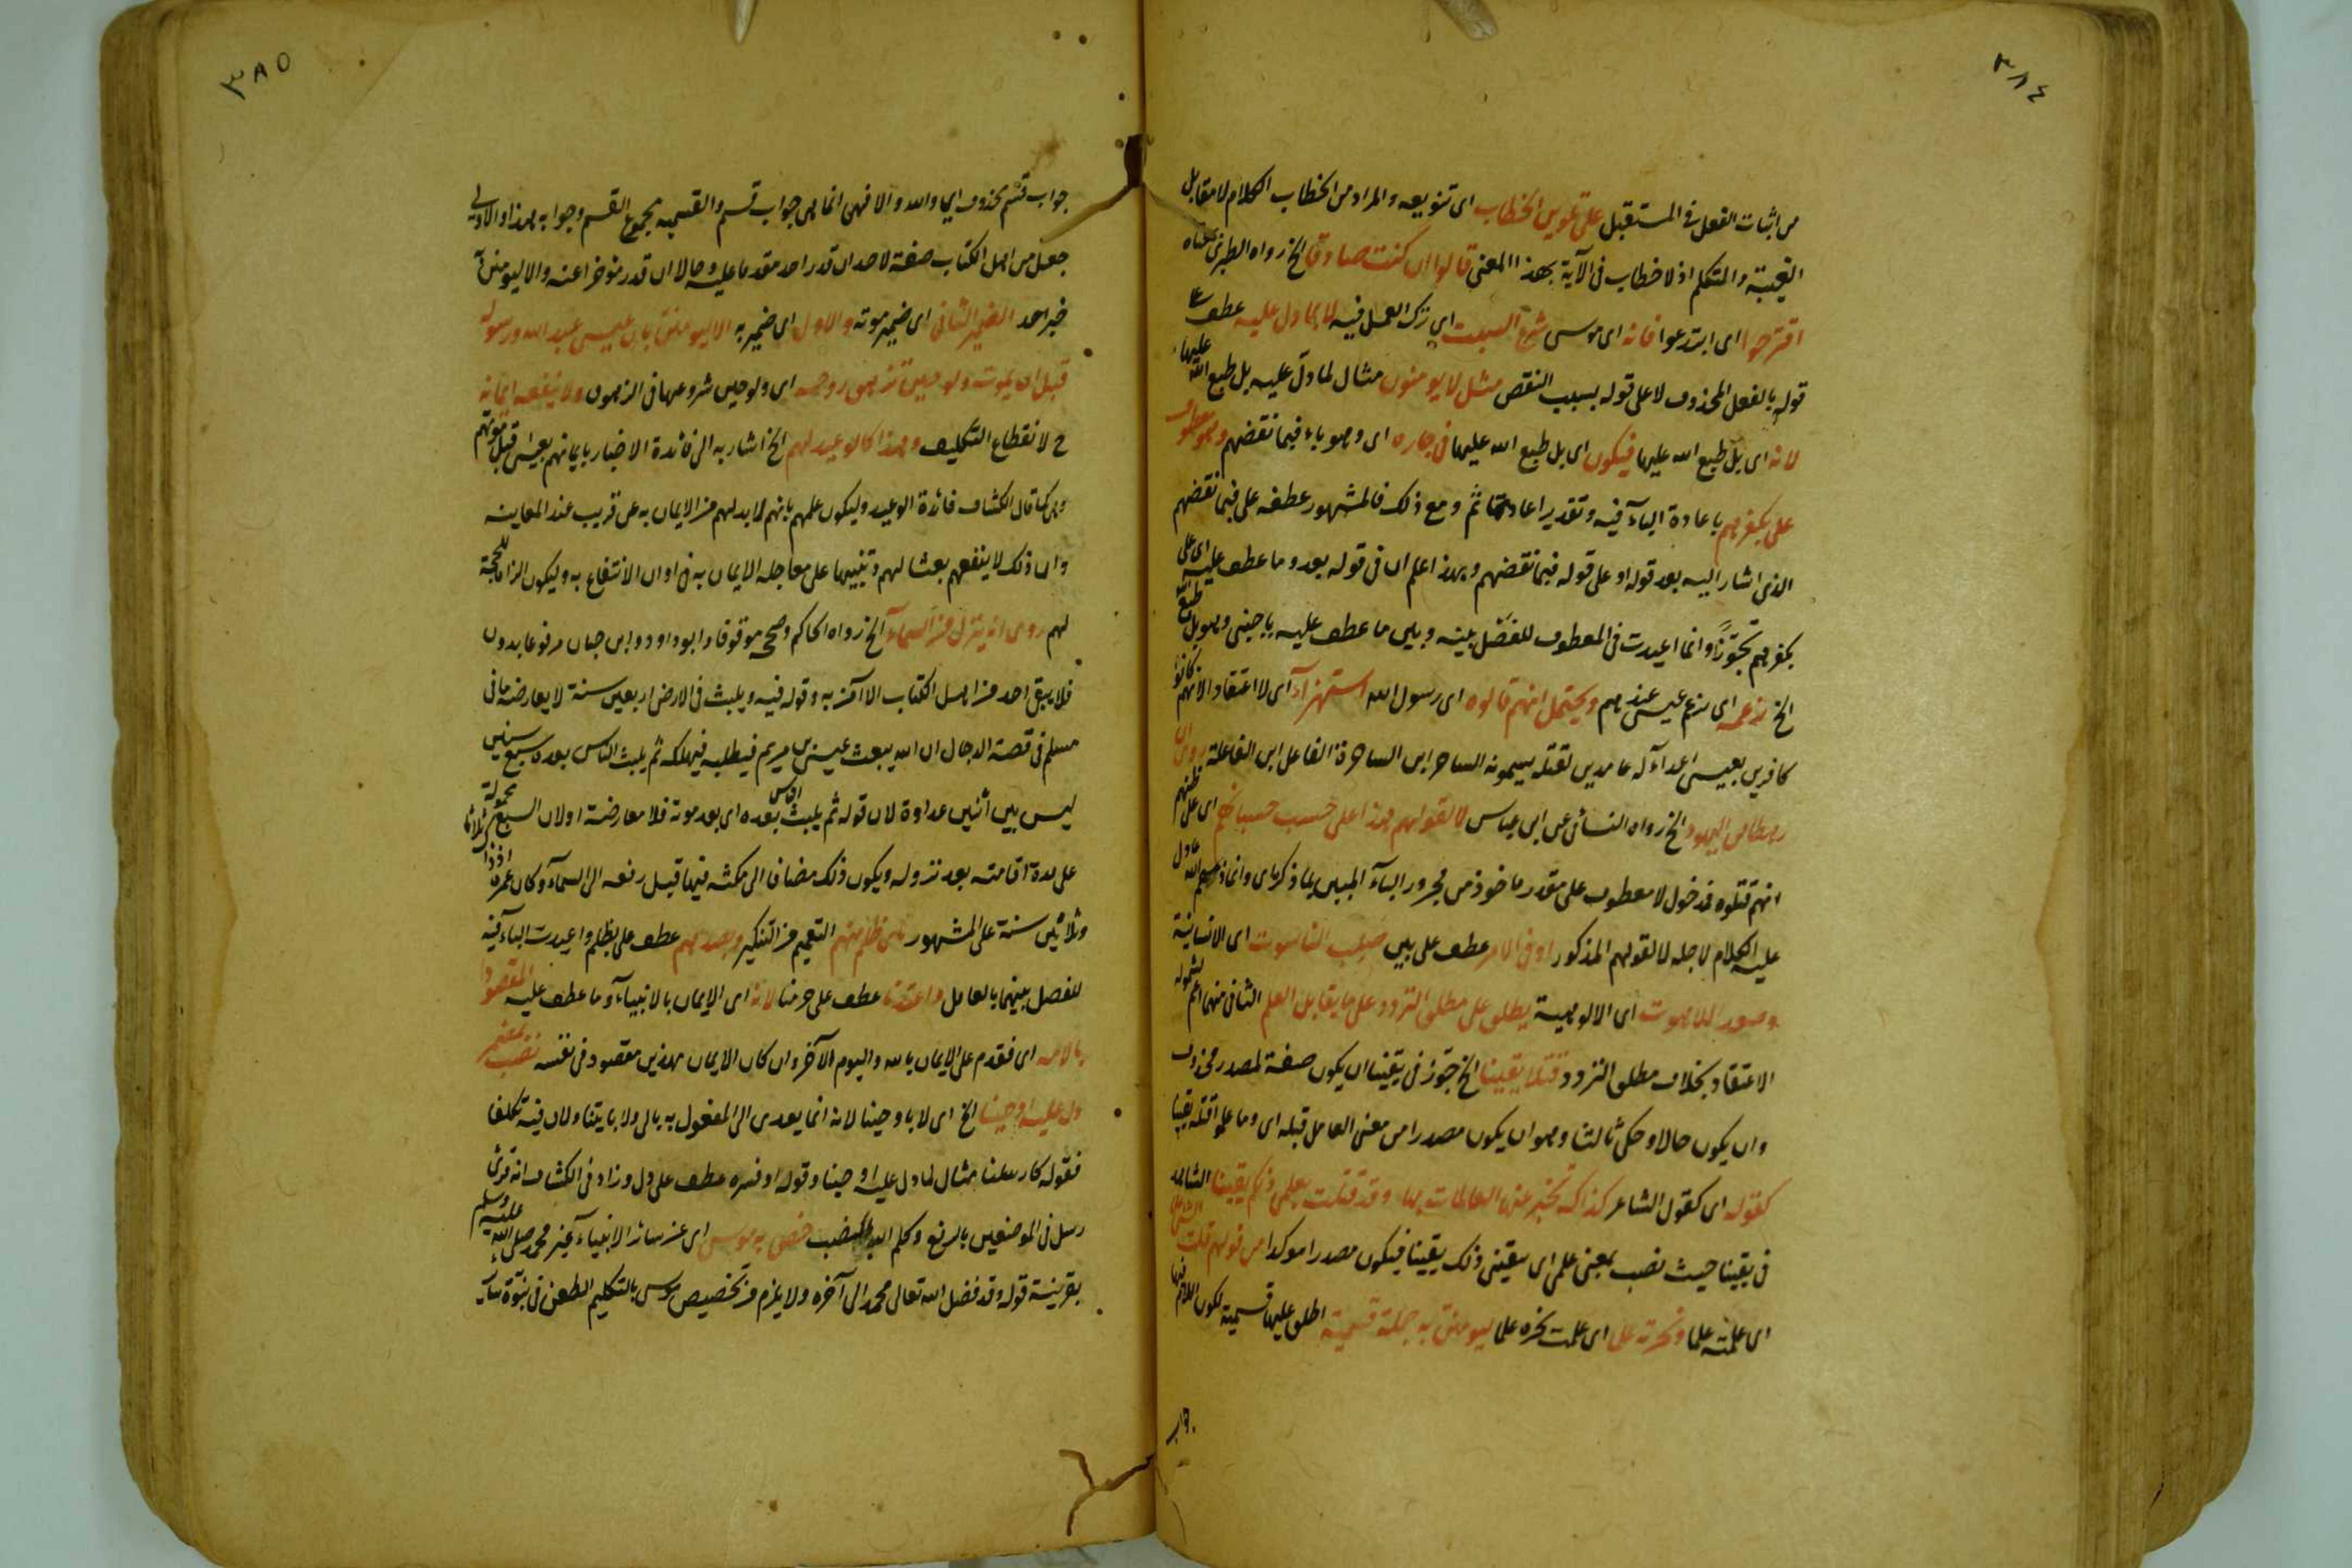 ٣٨٤
من اثبات الفعل في المستقبل على تلوين الخطاب اى تنويعه والمراد من الخطاب الكلام لا مقابل
الغيبة والمتكلم اذ لا خطاب في الآية بهذا المعنى قالوا ان كنت صادقا الخ رواه الطبرى بمعناه
اقترحوا اى ابتدعوا فانه اى موسى شرع السبت اى ترك العمل فيه لا بما دل عليه عطف على
قوله بالفعل المحذوف لا على قوله بسبب النقض مثل لا يومنون مثال لما دل عليه بل طبع الله عليها
لانه اى بل طبع الله عليها فيكون اى بل طبع الله عليها فى جاره اى وهو باء فيما نقضهم وهو معطوف
على بكفرهم باعادة الباء فيه وتقدير اعادتها ثم ومع ذلك فالمشهور عطفه على فبما نقضهم
الذى اشار اليه بعد قوله او على قوله فبما نقضهم وبهذا علم ان فى قوله بعد وما عطف عليه اى على
بكفرهم تجوزا وانما اعيدت فى المعطوف للفصل بينه وبين ما عطف عليه باجنبى وهو بل طبع الله
الخ بزعمه اى بزعم عيسى عندهم ويحتمل انهم قالوه اى رسول الله استهزآء اى لا اعتقاد الانهم كانوا
كافرين بعيسى اعدآء له عامدين لقتله يسمونه الساحر ابن الساحرة الفاعل ابن الفاعلة روى ان
رهطا من اليهود الخ رواه النسائى عن ابن عباس لا لقولهم هذا على حسب حسبانهم اى على ظنهم
انهم قتلوه فدخول لا معطوف على مقدر ماخوذ من مجرور الباء المبين بما ذكر اى وانما ذمهم الله بما دل
عليه الكلام لاجله لا لقولهم المذكور او فى الامر عطف على بين صلب الناسوت اى الانسانية
وصعود اللاهوت اى الالوهية يطلق على مطلق التردد وعلى ما يقابل العلم الثانى منهما اعم لشموله
الاعتقاد بخلاف مطلق التردد قتلا يقينا الخ جوز فى يقينا ان يكون صفة لمصدر محذوف
وان يكون حالا وحكى ثالثا وهو ان يكون مصدرا من معنى العامل قبله اى وما علموا قتله يقينا
كقوله اى كقول الشاعر كذاك تخبر عنها العالمات بها وقد قتلت بعلمى ذلكم يقينا الشاهد
فى يقينا حيث نصب بمعنى علمى اى يتقنى ذلك يقينا فيكون مصدرا موكدا من قولهم قتلت الشئ علما
اى علمته علما ونحرته علما اى علمت نحره علما ليومنن به جملة قسمية اطلق عليها قسمية لكون اللام فيها
٣٨٥
جواب قسم محذوف اى والله والا فهى انما هى جواب قسم والقسمية مجموع القسم وجوابه هذا والاولى
جعل من اهل الكتاب صفة لاحد ان قدر احد مقدما عليه وحالا ان قدر موخرا عنه والا ليومنن به
خبر احد الضمير الثانى اى ضمير موته والاول اى ضمير به الا ليومنن بان عيسى عبد الله ورسوله
قبل ان يموت ولو حين تزهق روحه اى ولو حين شروعها فى الزهوق ولا ينفعه ايمانه
ح لانقطاع التكليف وهذا كالوعيد لهم الخ اشار به الى فائدة الاخبار بايمانهم بعيسى قبل موتهم
وهى كما قال الكشاف فائدة الوعيد وليكون علمهم بانهم لا بد لهم من الايمان به عن قريب عند المعاينة
وان ذلك لا ينفعهم بعثا لهم وتنبيها على معاجلة الايمان به فى اوان الانتفاع به وليكون الزاما للحجة
لهم روى انه ينزل من السماء الخ رواه الحاكم وصححه موقوفا وابو داود وابن حبان مرفوعا بدون
فلا يبقى احد من اهل الكتاب الا آمن به وقوله فيه ويلبث فى الارض اربعين سنة لا يعارضه ما فى
مسلم فى قصة الدجال ان الله يبعث عيسى بن مريم فيطلبه فيهلكه ثم يلبث الناس بعده سبع سنين
ليس بين اثنين عداوة لان قوله ثم يلبث الناس بعده اى بعد موته فلا معارضة او لان السبع محمولة
على مدة اقامته بعد نزوله ويكون ذلك مضافا الى مكثه فيها قبل رفعه الى السماء وكان عمره اذ ذاك ثلاثا
وثلاثين سنة على المشهور بظلم منهم التعميم من التنكير وبصدهم عطف على بظلم واعيدت الباء فيه
للفصل بينهما بالعامل واعتدنا عطف على حرمنا لانه اى الايمان بالانبياء وما عطف عليه المقصود
بالآية اى فقدم على الايمان بالله واليوم الآخر وان كان الايمان بهذين مقصود فى نفسه نصب بمضمر
دل عليه اوحينا الخ اى لا باوحينا لانه انما يعدى الى المفعول به بالى ولا باتينا ولان فيه تكلفا
فقوله كارسلنا مثال لما دل عليه اوحينا وقوله او فسره عطف على دل وزاد فى الكشاف انه قرئ
رسل فى الموضعين بالرفع وكلم الله بالنصب خص به موسى اى عن سائر الانبياء غير محمد صلى الله عليه وسلم
بقرينة قوله وقد فضل الله تعالى محمدا الى آخره ولا يلزم من تخصيص موسى بالتكليم الطعن فى نبوة سائر